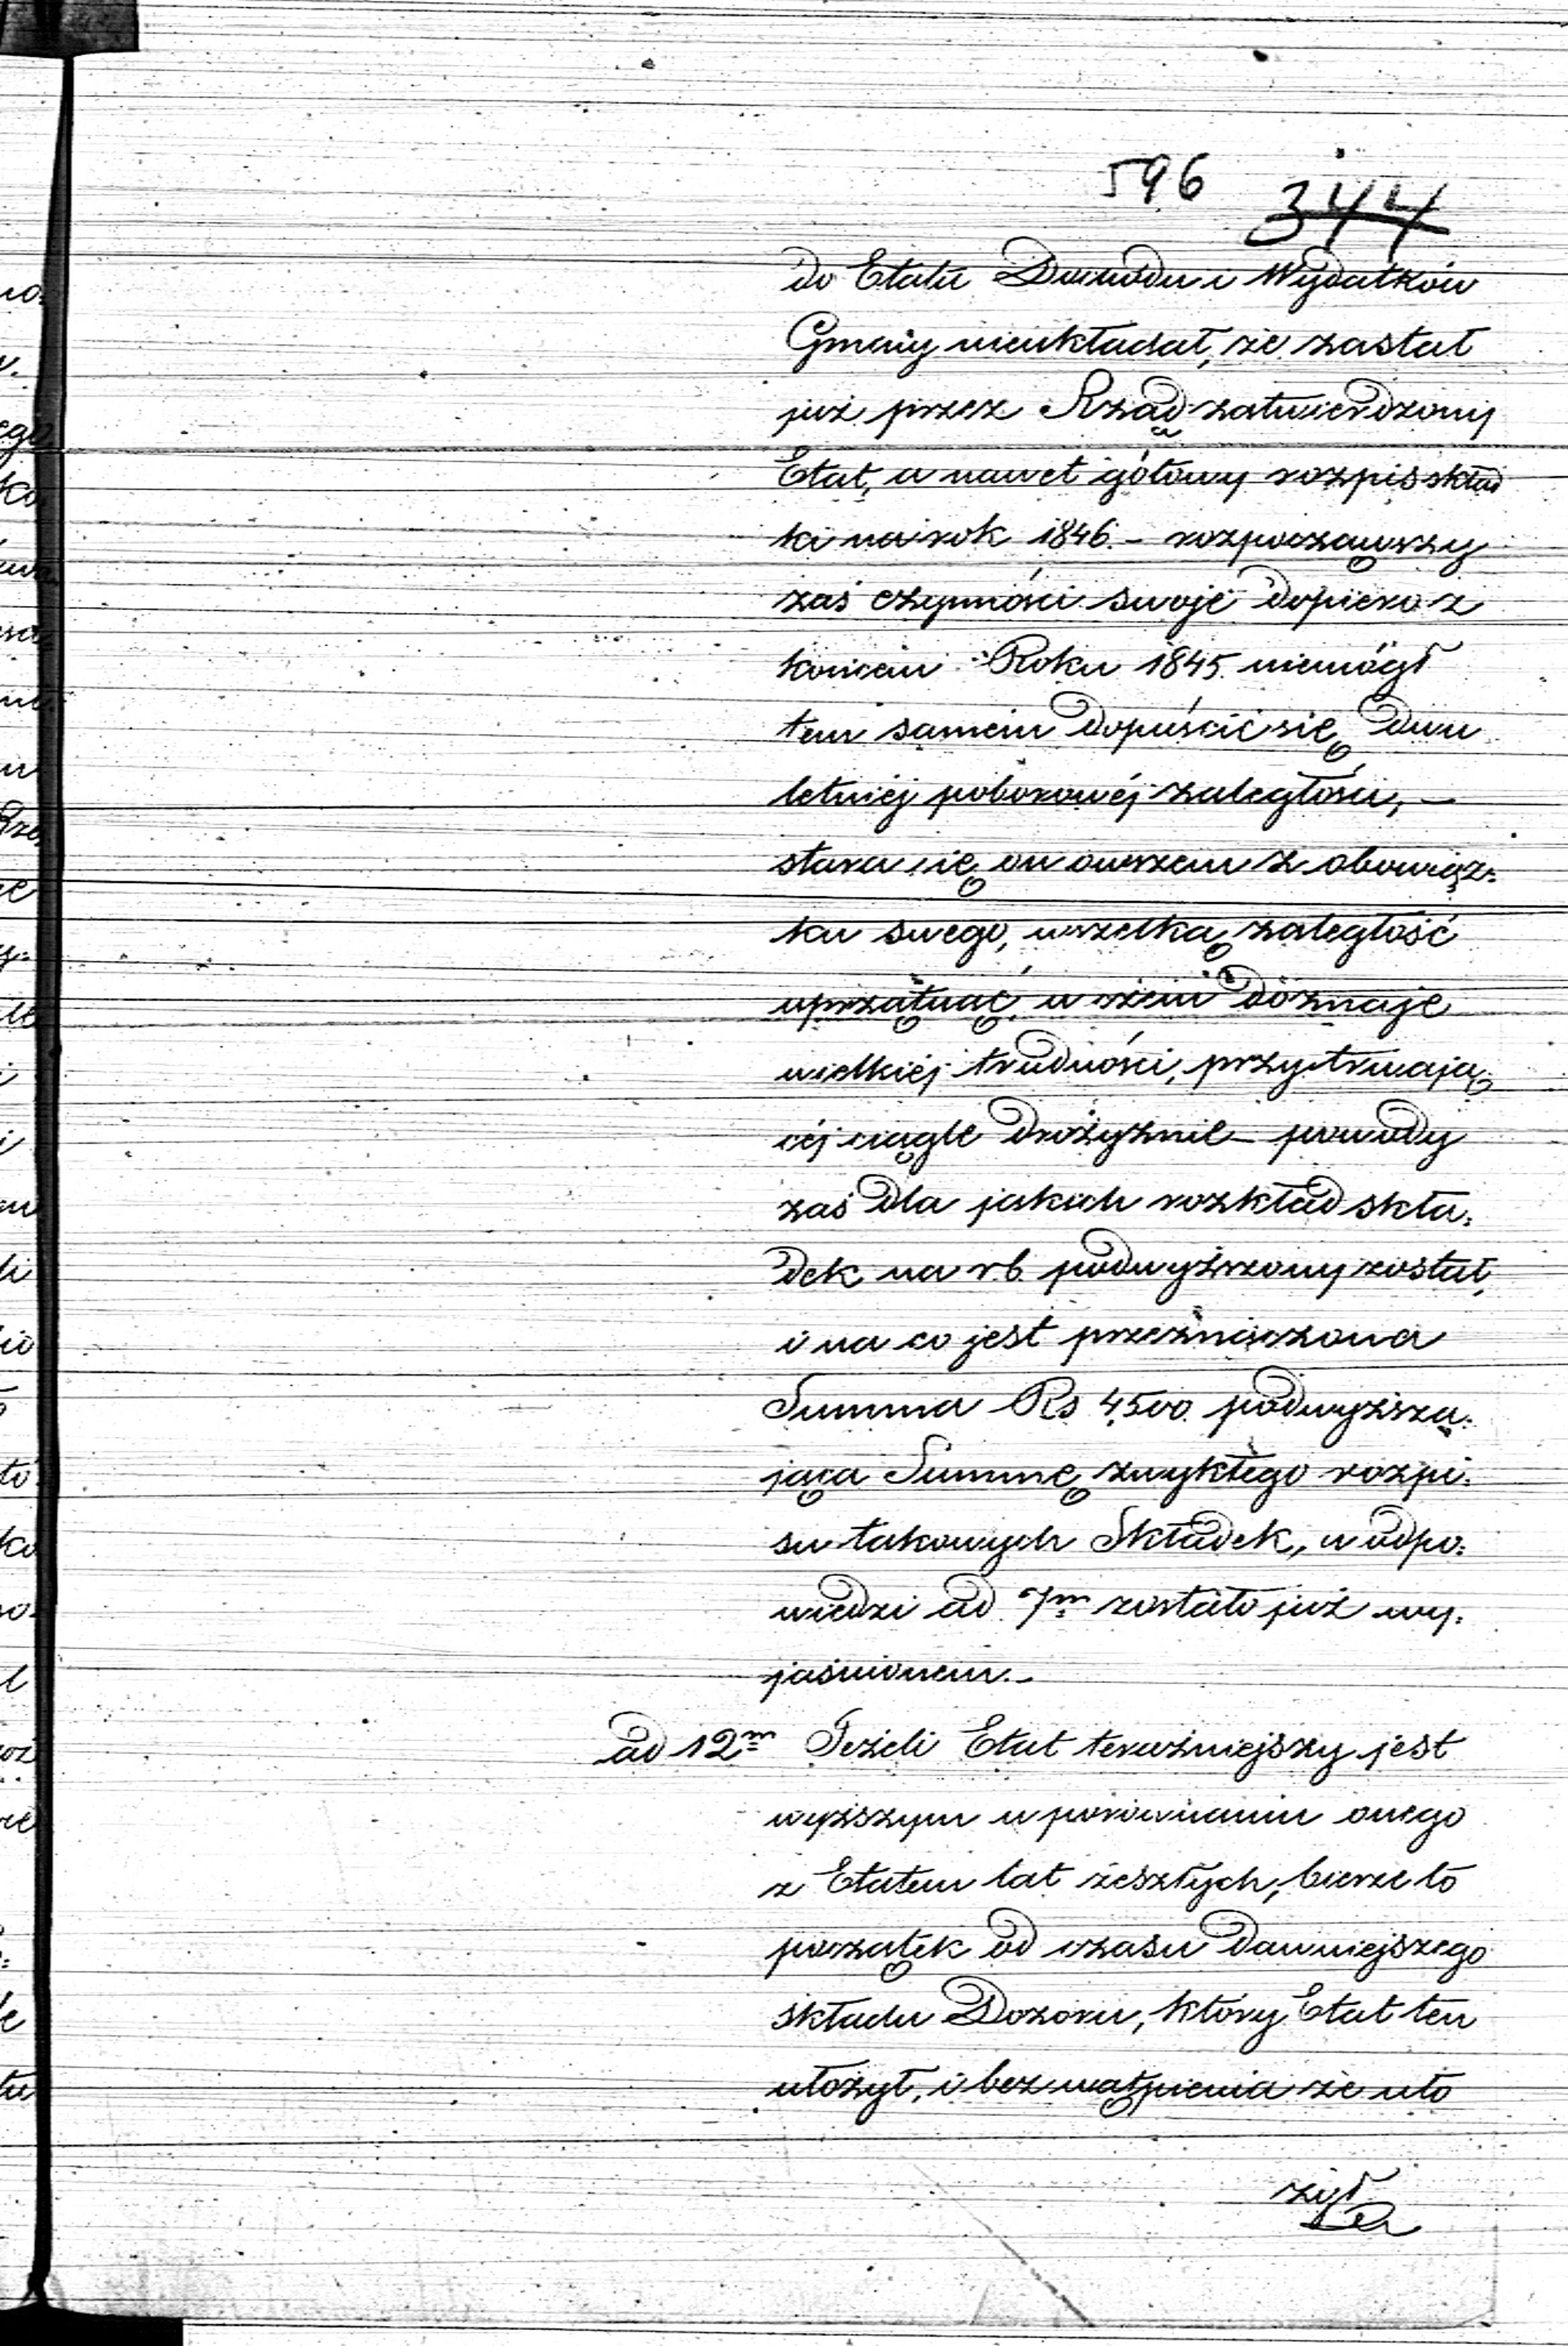 596 344
do Etatu Dochodu i Wydatków
Gminy nieukładał, że zastał
już przez Rząd zatwierdzony
Etat, a nawet gotowy rozpis skład
ki na rok 1846. – rozpocząwszy
zaś czynności swoje dopiero z
końcem Roku 1845. niemógł
tem samem dopuścić się dwu
letniéj poborowéj zaległości, –
stara się on owszem z obowiąz:
ku swego, wszelką zaległość
uprzątnąć, w czem doznaje
wielkiéj trudności, przy trwają:
céj ciągle drożyznie – powody
zaś dla jakich rozkład skła:
dek na r.b. podwyższony został,
i na co jest przeznaczona
Summa Rs 4500. podwyższa:
jąca Summę zwykłego rozpi:
su takowych Składek, w odpo:
wiedzi ad 7m zostało już wy:
jaśnionem. –
ad 12m Jeżeli Etat teraźniejszy jest
wyższym w porównaniu onego
z Etatem lat zeszłych, bierze to
początek od czasu dawniejszego
składu Dozoru, który Etat ten
ułożył, i bez wątpienia że uło
żył